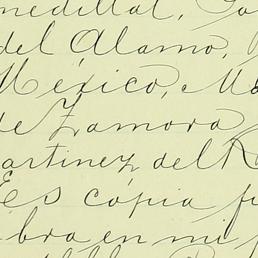 nedillal, Go
del Alamo,
México, Ma
de Zamora
artinez del R
Es cópia f
bra, en mi